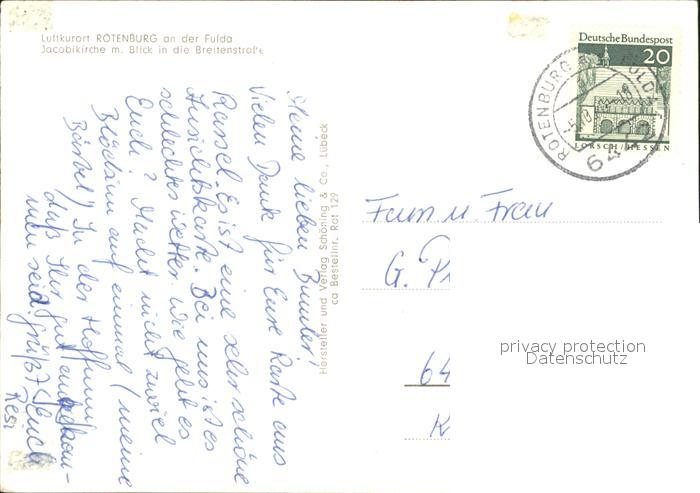 Luftkurort ROTENBURG an der Fulda
Jacobikirche m. Blick in die Breitenstraße
Deutsche Bundespost
20
LORSCH/HESSEN
ROTENBURG
FULDA
64
Meine lieben
Vielen Dank für Eure Karte aus
Kassel. Es ist eine sehr schöne
Ansichtskarte. Bei uns ist es
schlechtes Wetter. Wie geht es
Euch? Macht nicht zuviel
Blödsinn auf einmal (meine
Bärbel) In der Hoffnung
daß Ihr gut
men seid, grüßt Euch
Resi
Hersteller und Verlag Schöning & Co., Lübeck
ca Bestellnr. Rot 129
Fam u. Frau
G.
64
K
privacy protection
Datenschutz